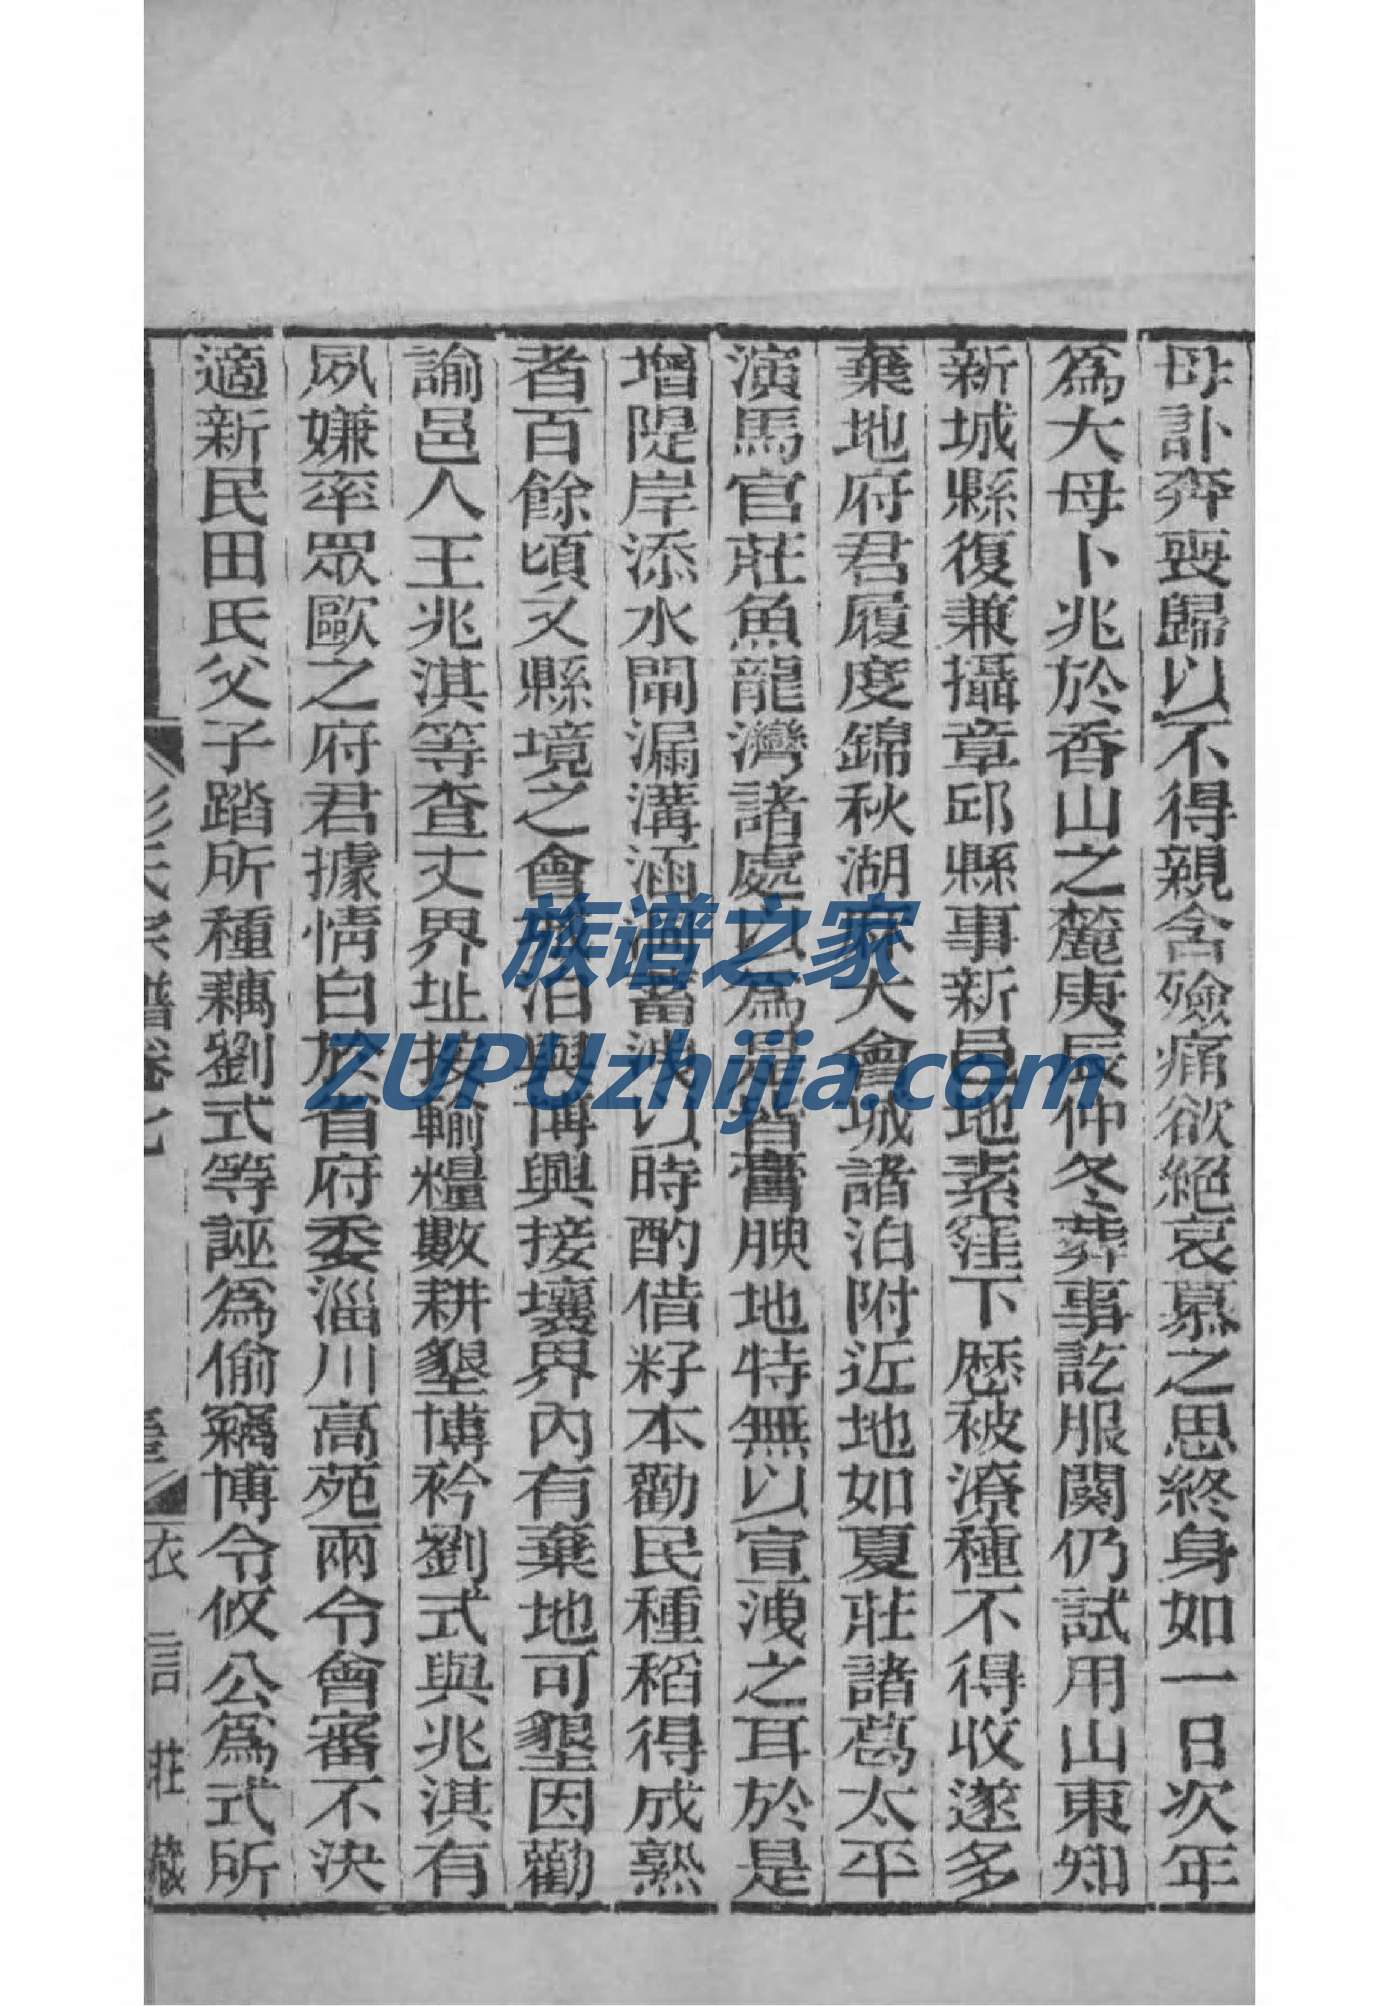 母訃奔喪歸以不得親含殮痛欲絕哀慕之思終身如一日次年
爲大母卜兆於香山之麓庚辰仲冬葬事訖服闋仍試用山東知
新城縣復兼攝章邱縣事新邑地素窪下歷被潦種不得收遂多
棄地府君履度錦秋湖麻大會城諸泊附近地如夏莊諸葛太平
演馬官莊魚龍灣諸處以爲是皆膏腴地特無以宣洩之耳於是
增隄岸添水閘漏溝涵洞蓄洩以時酌借籽本勸民種稻得成熟
者百餘頃又縣境之會城泊與博興接壤界內有棄地可墾因勸
諭邑人王兆淇等查丈界址按輸糧數耕墾博衿劉式與兆淇有
夙嫌率眾歐之府君據情白於省府委淄川高苑兩令會審不決
適新民田氏父子踏所種藕劉式等誣爲偷竊博令攸公爲式所
彭氏宗譜卷七
衣言莊藏
族谱之家
ZUPUzhijia.com